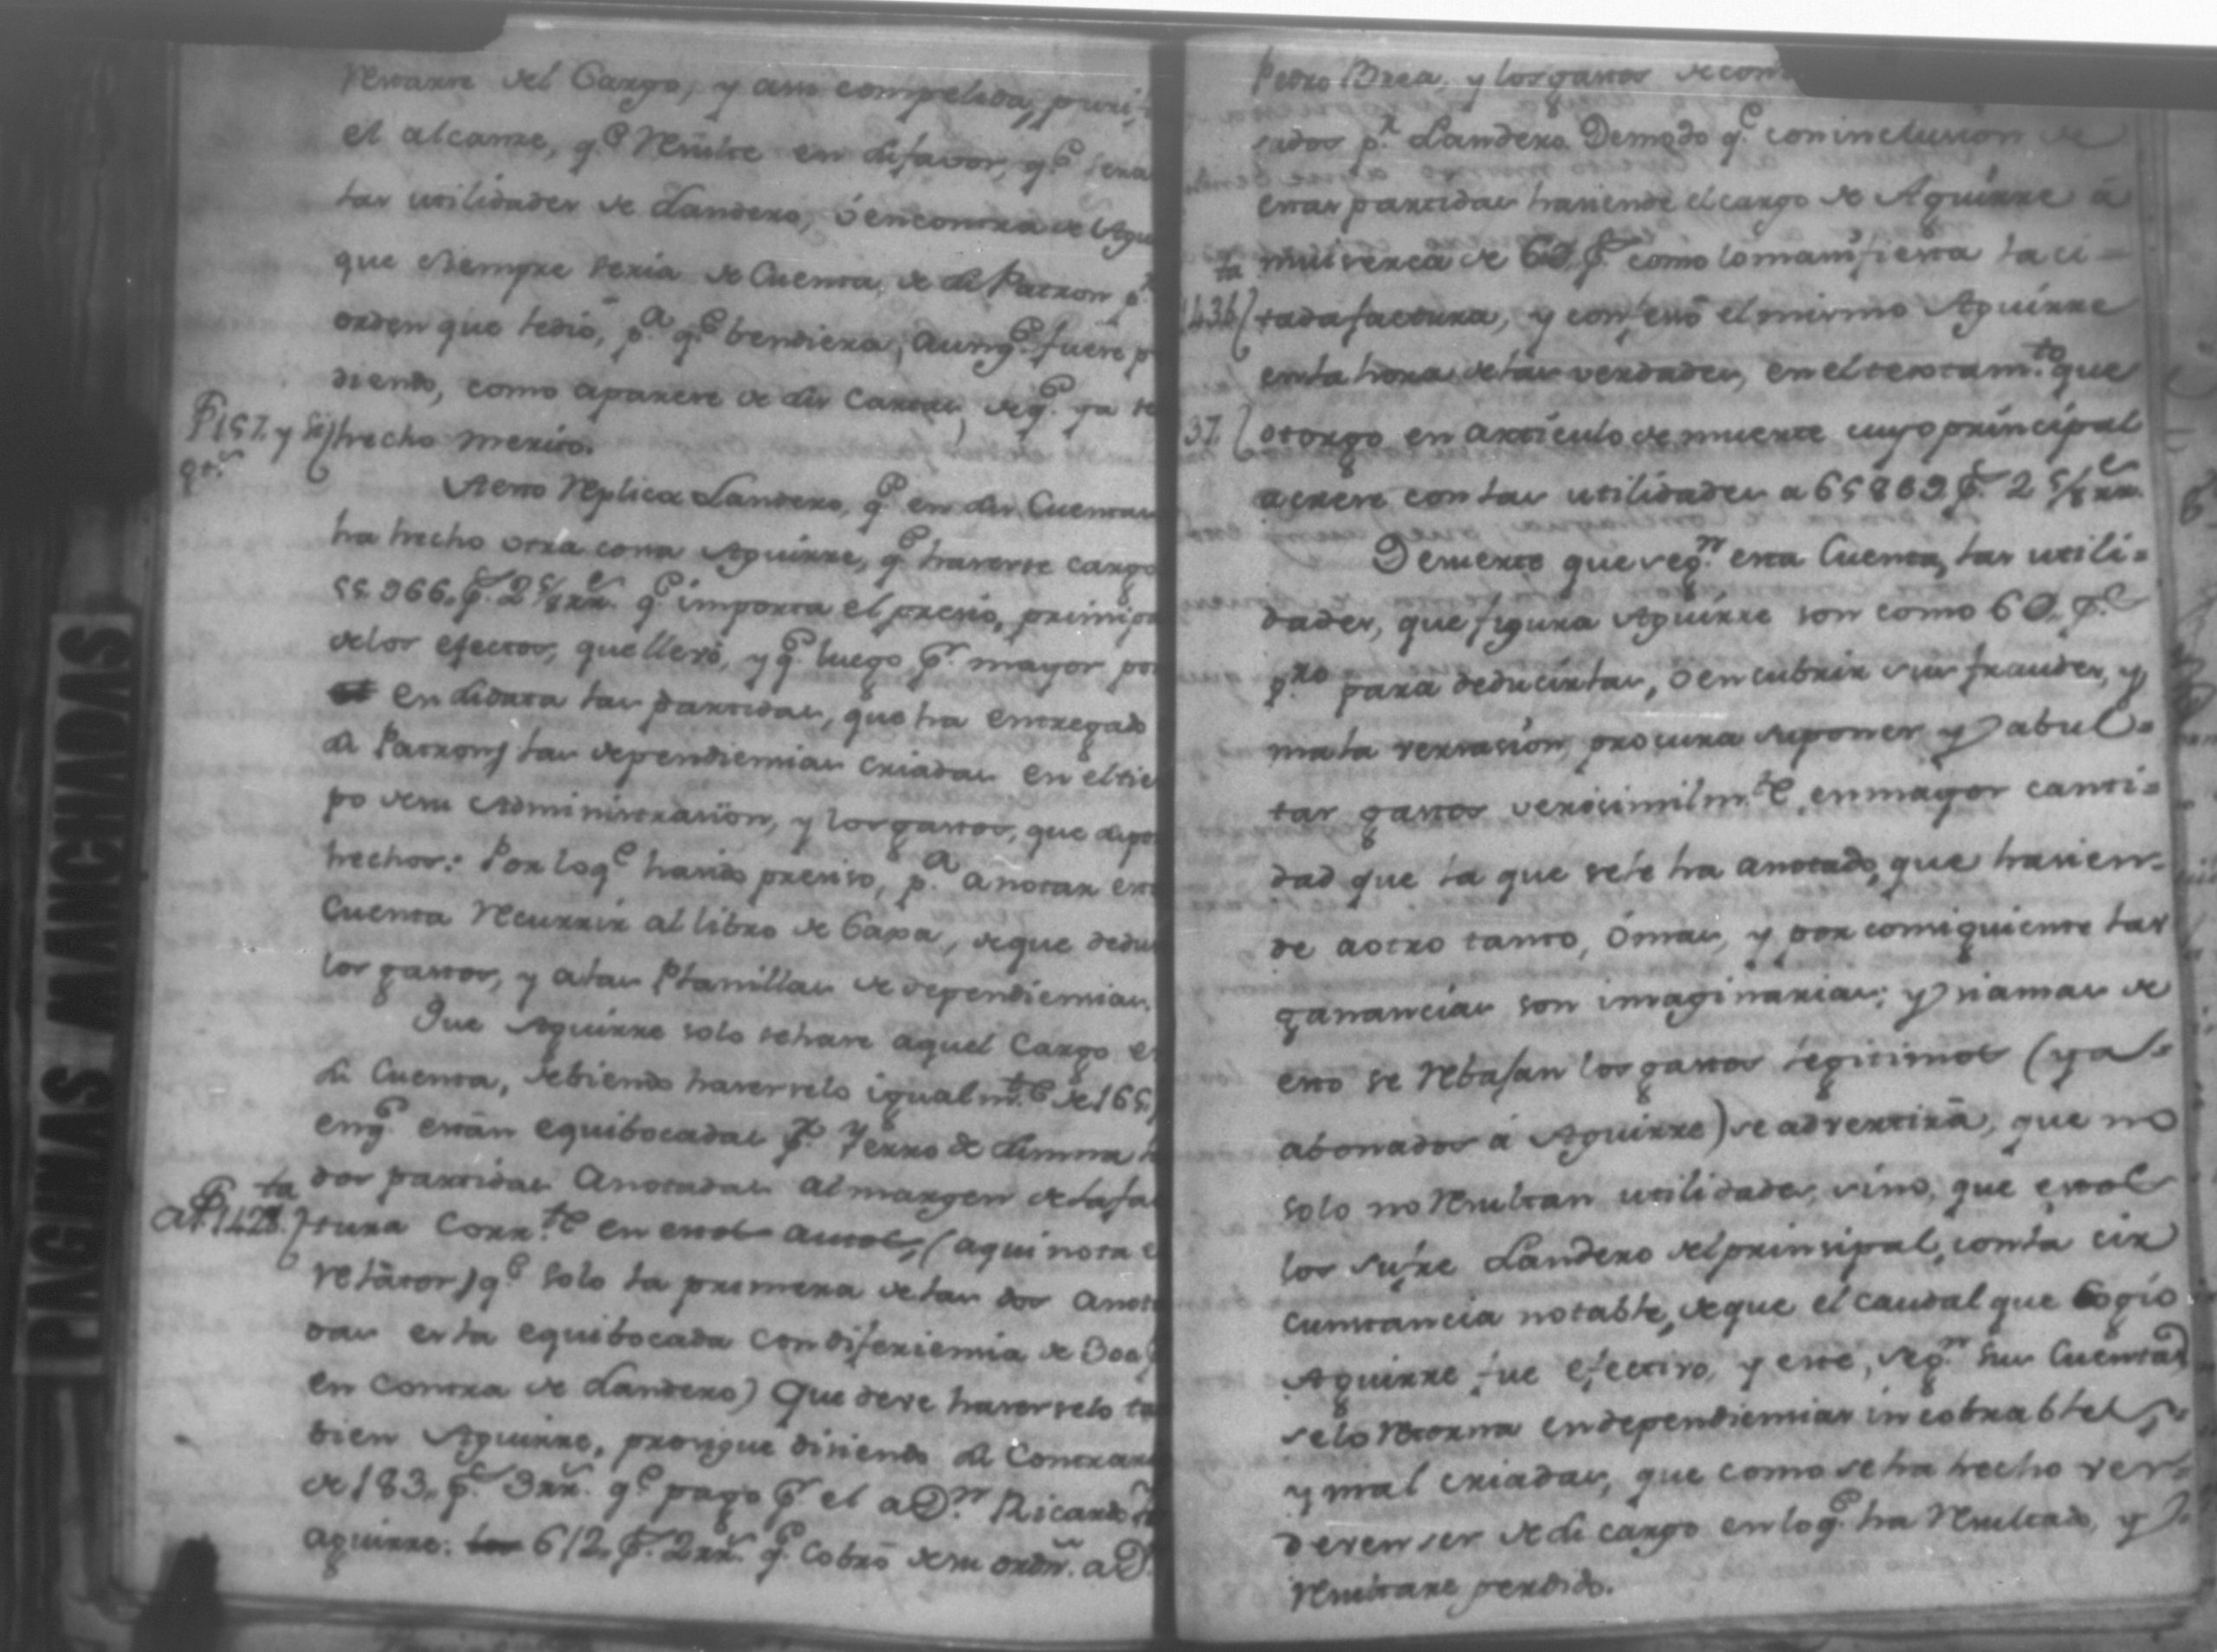 del Cargo, y aun compelida,
el alcanze, q.e Resulte en su favor, q.e sera
las utilidades de Landero, ó en contra de Agu
que siempre seria de Cuenta, de su Patron p.r
orden que ledió, p.a q.e bendiera, aunq.e fuese p
diendo, como aparece de sus Cartas, deq.e ya se
F 157. y sig hecho merito.
A esto Replica Landero, q.e en su Cuenta
ha hecho otra cosa Aguirre, q.e hacerse cargo
55.966. p.s 2 5/8 rr.s q.e importa el precio, principa
delos efectos, que llevó, y q.e luego p.r mayor po
en su data las partidas, que ha entregado
su Patron, las dependiencias criadas en el tie
po de su Administrasion, y los gastos, que supo
hechos: Por loq.e ha sido preciso, p.a anotar esta
Cuenta Recurrir al libro de Caxa, de que dedu
los gastos, y a las Planillas de dependiencias.
Que Aguirre solo se hace aquel Cargo e
su Cuenta, debiendo haverselo igualm.te de 165,
enq.e están equibocadas p.r Yerro de suma
dos partidas Anotadas al margen de la fa
a f 142. tura Corr.te en estos autos, (aqui nota e
Relator) q.e solo la primera de las dos anota
das esta equibocada con difericiencia de
en Contra de Landero) Que deve haverselo ta
bien Aguirre, prosigue diciendo su Contrar
de 183. p.s 3 rr.s q.e pagó p.r el a D.n Ricardo
aguirre: 612. p.s 2 rr.s q.e Cobró de su ordn. a D.
Pedro Brea, y los gastos decom
sados p.r Landero. Demodo q.e con inclusion de
estas partidas hasciende el cargo de Aguirre á
mui cerca de 60. p.s como lo manifiesta la ci-
436 tada factura, y confesó el mismo Aguirre
en la hora delas verdades, en el testam.to que
37. otorgo en articulo de muerte cuyo principal
acrece con las utilidades a 65869. p.s 2 5/8 rr.s
De suerte que seg.n esta Cuenta, las utili-
dades, que figura Aguirre son como 60. p.s
p.ro para deducirlas, ó encubrir sus fraudes, y
mala versasion, procura suponer y abul-
tar gastos verocimilm.te en mayor canti-
dad que la que sele ha anotado, que hascien-
de a otro tanto, ó mas, y por consiguiente las
ganancias son imaginarias; y si a mas de
esto se Rebajan los gastos legitimos (ya
abonados á Aguirre) se advertirá, que no
solo no Resultan utilidades, sino, que estos
los sufre Landero del principal, con la cir
cunstancia notable, deque el caudal que Cogio
Aguirre fue efectivo, y este, seg.n sus Cuentas
selo Retorna en dependiencias incobrables,
y mal criadas, que como se ha hecho ver
deven ser de su cargo en loq.e ha Resultado, y
Resultare perdido.
PAGINAS MANCHADAS